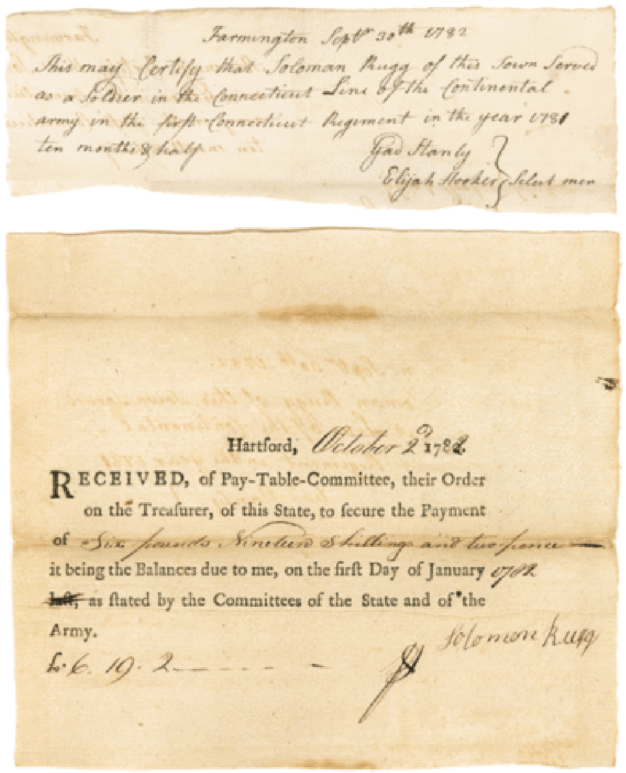 Farmington Septr 30th 1782
This may Certify that Soloman Rugg of this Town Served
as a Soldier in the Connecticut Line of the Continental
army in the first Connecticut Regiment in the year 1781
ten months & half
Gad Stanly
Elijah Hooker Select men
Hartford, October 2d 1782.
RECEIVED, of Pay-Table-Committee, their Order
on the Treasurer, of this State, to secure the Payment
of Six pounds Nineteen Shillings and two pence
it being the Balances due to me, on the first Day of January 1782
last, as stated by the Committees of the State and of the
Army.
£. 6. 19. 2
Solomon Rugg